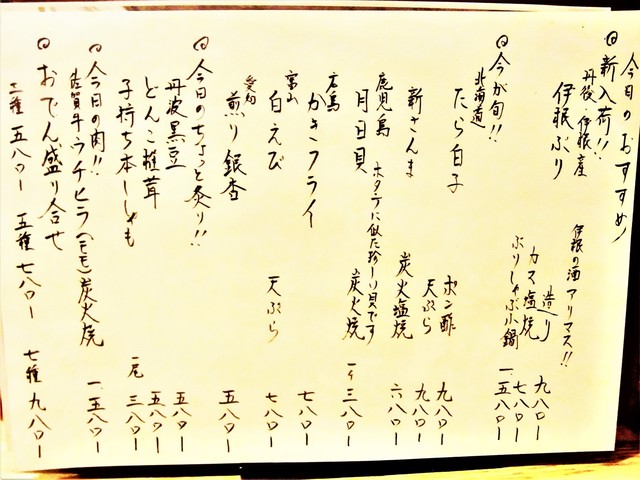 今日のおすすめ
◎新入荷!!
丹後、伊根産
伊根ぶり
伊根の酒アリマス!!
造り 九八〇ー
カマ塩焼 七八〇ー
ぶりしゃぶ小鍋 一、五八〇ー
◎今が旬!!
北海道
たら白子
ポン酢 九八〇ー
天ぷら 九八〇ー
新さんま 炭火塩焼 六八〇ー
鹿児島
月日貝 ホタテに似た珍しい貝です
炭火焼 一ケ 三八〇ー
広島
かきフライ 七八〇ー
富山
白えび 天ぷら 七八〇ー
愛知
煎り銀杏 五八〇ー
◎今日のちょっと炙り!!
丹波黒豆 五八〇ー
どんこ椎茸 五八〇ー
子持ち本ししゃも 一尾 三八〇ー
◎今日の肉!!
佐賀牛ウチヒラ(モモ)炭火焼 一、五八〇ー
◎おでん盛り合せ
三種 五八〇ー 五種 七八〇ー 七種 九八〇ー